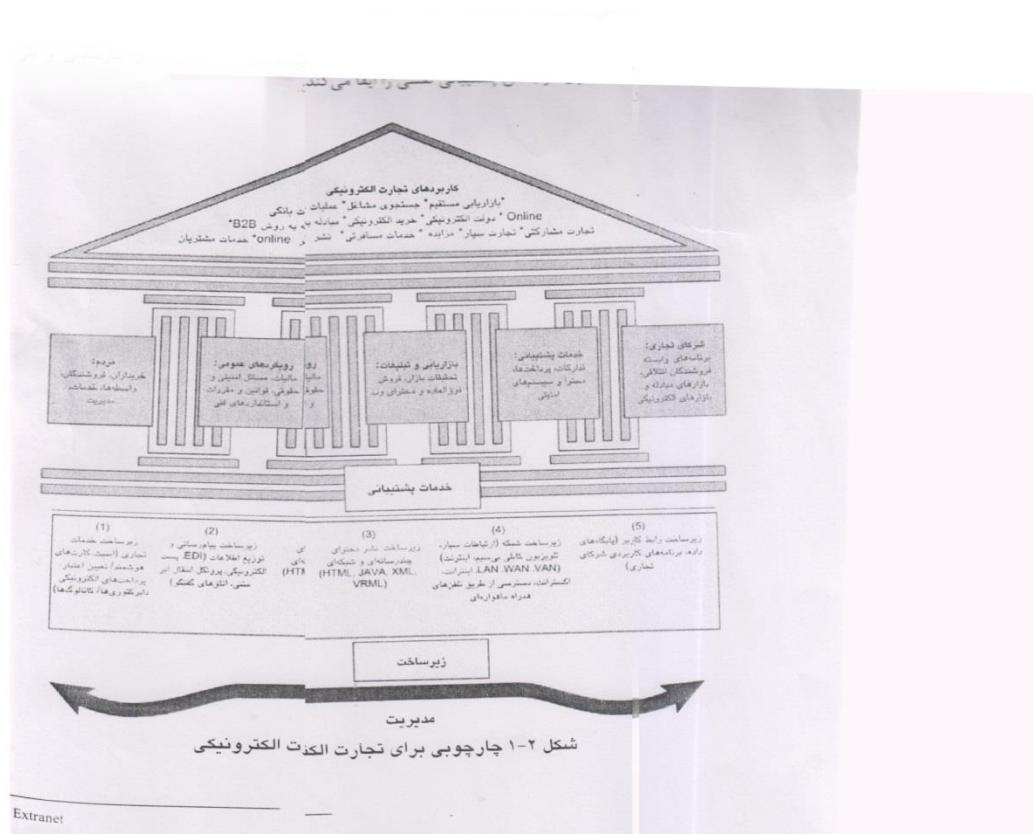 پشتیبانی
را ایفا می کند.
کاربردهای تجارت الکترونیکی
*بازاریابی مستقیم* جستجوی مشاغل* عملیات ت بانکی
Online* دولت الکترونیکی* خرید الکترونیکی* مبادله به به روش B2B*
تجارت مشارکتی* تجارت سیار* مزایده* خدمات مسافرتی* نشر ر online* خدمات مشتریان
مردم:
خریداران، فروشندگان،
واسطه‌ها، خدمات،
مدیریت
رویکردهای عمومی:
مالیات، مسائل امنیتی و
حقوقی، قوانین و مقررات
و استانداردهای فنی
رو
مالیا
حقوقـ
و
بازاریابی و تبلیغات:
تحقیقات بازار، فروش
فوق‌العاده و محتوای وب
خدمات پشتیبانی:
تدارکات، پرداخت‌ها،
محتوا و سیستم‌های
امنیتی
شرکای تجاری:
برنامه‌های وابسته
فروشندگان ائتلافی،
بازارهای مبادله و
بازارهای الکترونیکی
خدمات پشتیبانی
(1)
زیرساخت خدمات
تجاری (امنیت کارت‌های
هوشمند/ تعیین اعتبار
پرداخت‌های الکترونیکی
دایرکتوری‌ها/ کاتالوگ‌ها)
(2)
زیرساخت پیام‌رسانی و
توزیع اطلاعات (EDI، پست
الکترونیکی، پروتکل انتقال ابر
متنی، اتاق‌های گفتگو)
ای
ـه‌ای
(HTM
(3)
زیرساخت نشر محتوای
چندرسانه‌ای و شبکه‌ای
(HTML, JAVA, XML,
VRML)
(4)
زیرساخت شبکه (ارتباطات سیار،
تلویزیون کابلی بی‌سیم، اینترنت)
(LAN ،WAN ،VAN، اینترانت،
اکسترانت، دسترسی از طریق تلفن‌های
همراه ماهواره‌ای
(5)
زیرساخت رابط کاربر (پایگاه‌های
داده، برنامه‌های کاربردی شرکای
تجاری)
زیرساخت
مدیریت
شکل ۲-۱ چارچوبی برای تجارت الکت الکترونیکی
Extranet